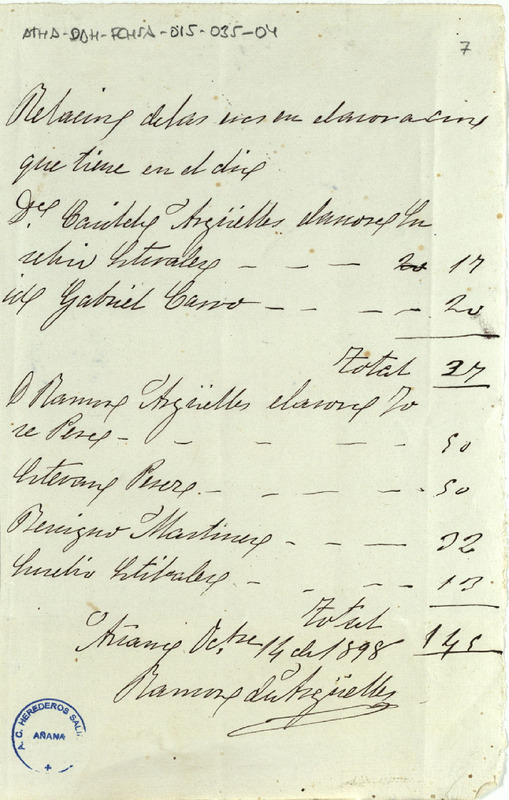 ATHA-DAH-FCHSA-015-035-04
7
Relacion delas eras en elavoracion
que tiene en el dia
Dª Casilda Argüelles elavora Eu
sebio Estivalez — — — 20 17
id Gabriel Casso — — — 20
Total 37
D Ramon Argüelles elavora Jo
se Perez — — — — 50
Estevan Perez — — — — 50
Benigno Martinez — — — 32
Eusebio Estibalez — — — 13
Total 145
Añana Octre 14 de 1898
Ramon de Argüelles
A. C. HEREDEROS SALI
AÑANA